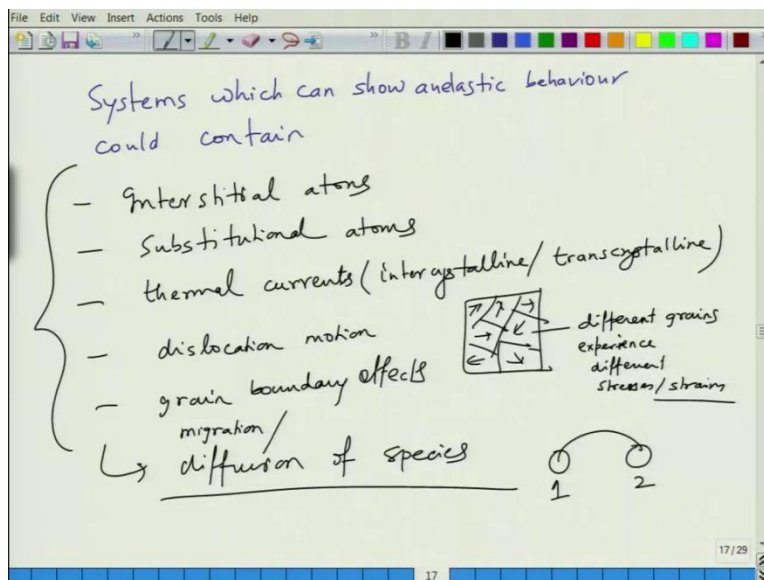 File Edit View Insert Actions Tools Help
Systems which can show anelastic behaviour
could contain
– Interstitial atoms
– Substitutional atoms
– thermal currents (intercrystalline/transcrystalline)
– dislocation motion
– grain boundary effects
different grains
experience
different
stresses/strains
migration/
↳ diffusion of species
1 2
17/29
17